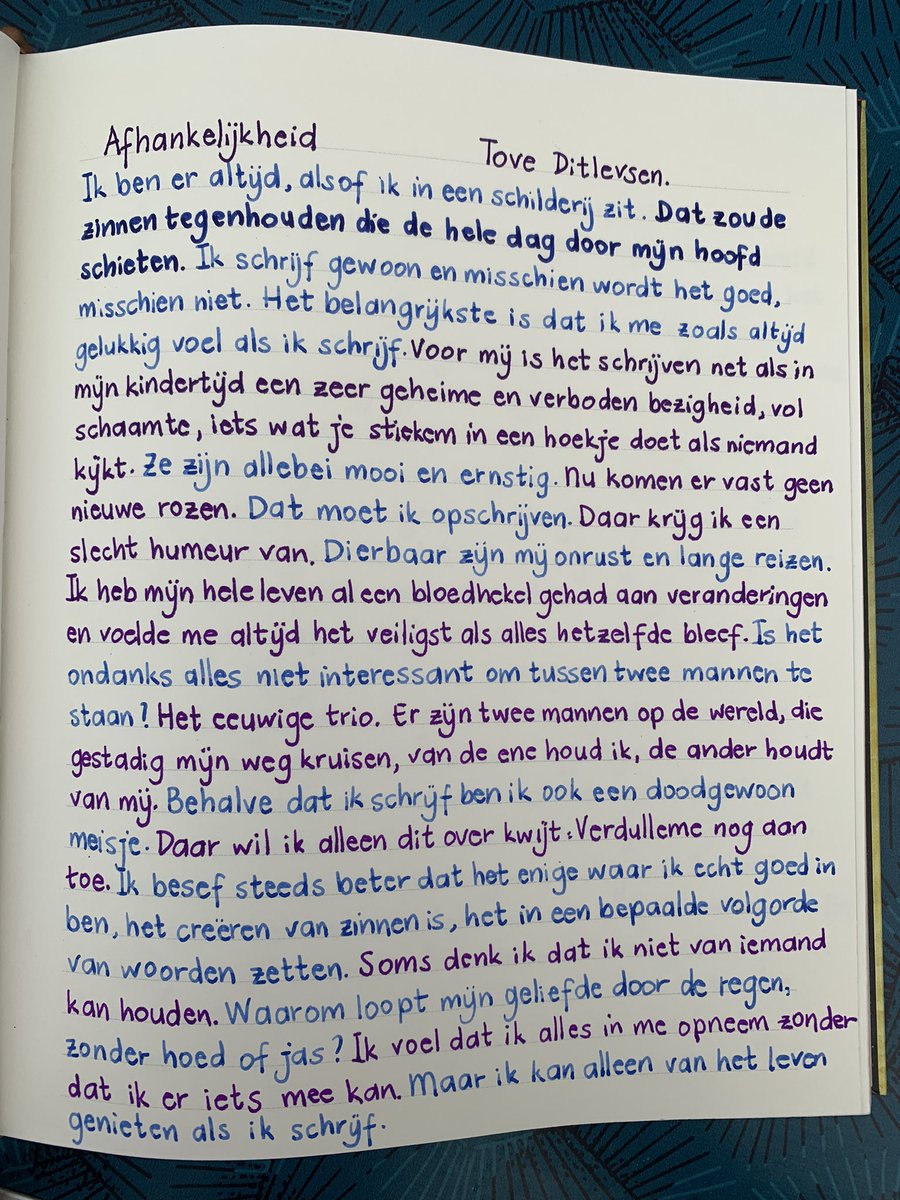 Afhankelijkheid Tove Ditlevsen.
Ik ben er altijd, alsof ik in een schilderij zit. Dat zou de
zinnen tegenhouden die de hele dag door mijn hoofd
schieten. Ik schrijf gewoon en misschien wordt het goed,
misschien niet. Het belangrijkste is dat ik me zoals altijd
gelukkig voel als ik schrijf. Voor mij is het schrijven net als in
mijn kindertijd een zeer geheime en verboden bezigheid, vol
schaamte, iets wat je stiekem in een hoekje doet als niemand
kijkt. Ze zijn allebei mooi en ernstig. Nu komen er vast geen
nieuwe rozen. Dat moet ik opschrijven. Daar krijg ik een
slecht humeur van. Dierbaar zijn mij onrust en lange reizen.
Ik heb mijn hele leven al een bloedhekel gehad aan veranderingen
en voelde me altijd het veiligst als alles hetzelfde bleef. Is het
ondanks alles niet interessant om tussen twee mannen te
staan? Het eeuwige trio. Er zijn twee mannen op de wereld, die
gestadig mijn weg kruisen, van de ene houd ik, de ander houdt
van mij. Behalve dat ik schrijf ben ik ook een doodgewoon
meisje. Daar wil ik alleen dit over kwijt: Verdulleme nog aan
toe. Ik besef steeds beter dat het enige waar ik echt goed in
ben, het creëren van zinnen is, het in een bepaalde volgorde
van woorden zetten. Soms denk ik dat ik niet van iemand
kan houden. Waarom loopt mijn geliefde door de regen,
zonder hoed of jas? Ik voel dat ik alles in me opneem zonder
dat ik er iets mee kan. Maar ik kan alleen van het leven
genieten als ik schrijf.